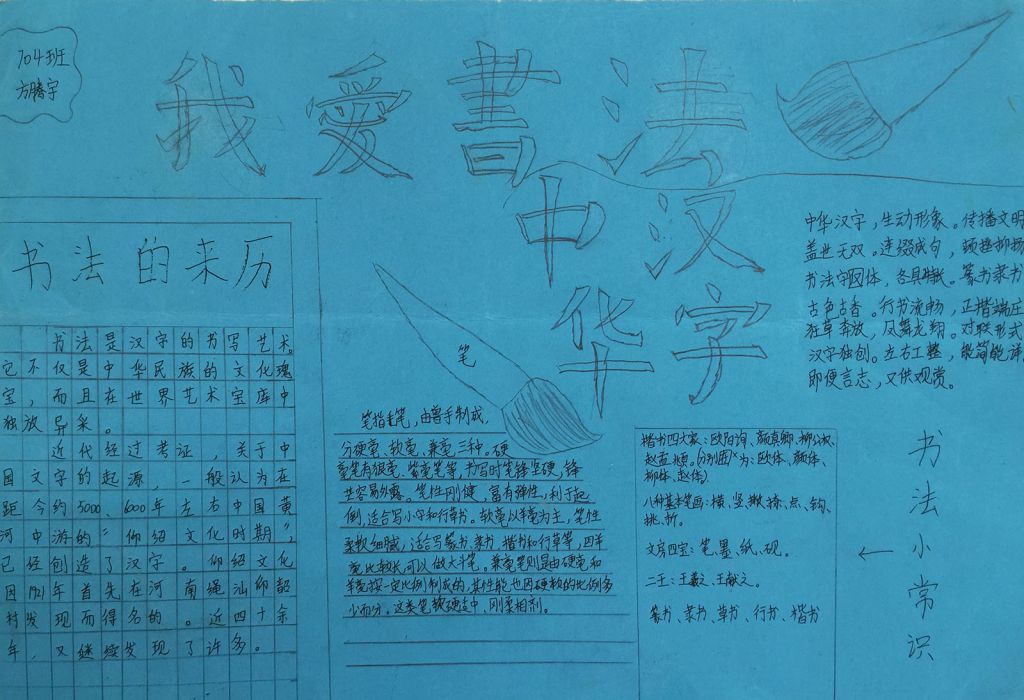 704班
方腾宇
我爱書法
中汉
华字
书法的来历
书法是汉字的书写艺术。
它不仅是中华民族的文化瑰
宝，而且在世界艺术宝库中
独放异采。
近代经过考证，关于中
国文字的起源，一般认为在
距今约5000、6000年左右中国黄
河中游的“仰绍文化时期”，
已经创造了汉字。仰绍文化
因1921年首先在河南绳汕仰韶
村发现而得名的。近四十余
年，又继续发现了许多。
笔
笔指毛笔，由兽手制成，
分硬毫、软毫、兼毫三种。硬
毫笔有狼毫、紫毫笔等，书写时笔锋坚硬，锋
芒容易外露。笔性刚健，富有弹性，利于起
倒，适合写小字和行草书。软毫以羊毫为主，笔性
柔软细腻，适合写篆书、隶书、楷书和行草等，因羊
毫比较长，可以做大斗笔。兼毫笔则是由硬毫和
羊毫按一定比例制成的，其性能也因硬软的比例多
少而分。这类笔软硬适中，刚柔相剂。
中华汉字，生动形象。传播文明
盖世无双。连缀成句，顿挫抑扬
书法字体，各具。篆书隶书
古色古香。行书流畅，正楷端庄
狂草奔放，凤舞龙翔。对联形式
汉字独创。左右工整，能简能详
即便言志，又供观赏。
楷书四大家：欧阳询、颜真卿、柳公权、
赵孟頫。（分别为：欧体、颜体、
柳体、赵体）
八种基本笔画：横、竖、撇、捺、点、钩、
挑、折。
文房四宝：笔、墨、纸、砚。
二王：王羲之、王献之。
篆书、隶书、草书、行书、楷书
书法小常识